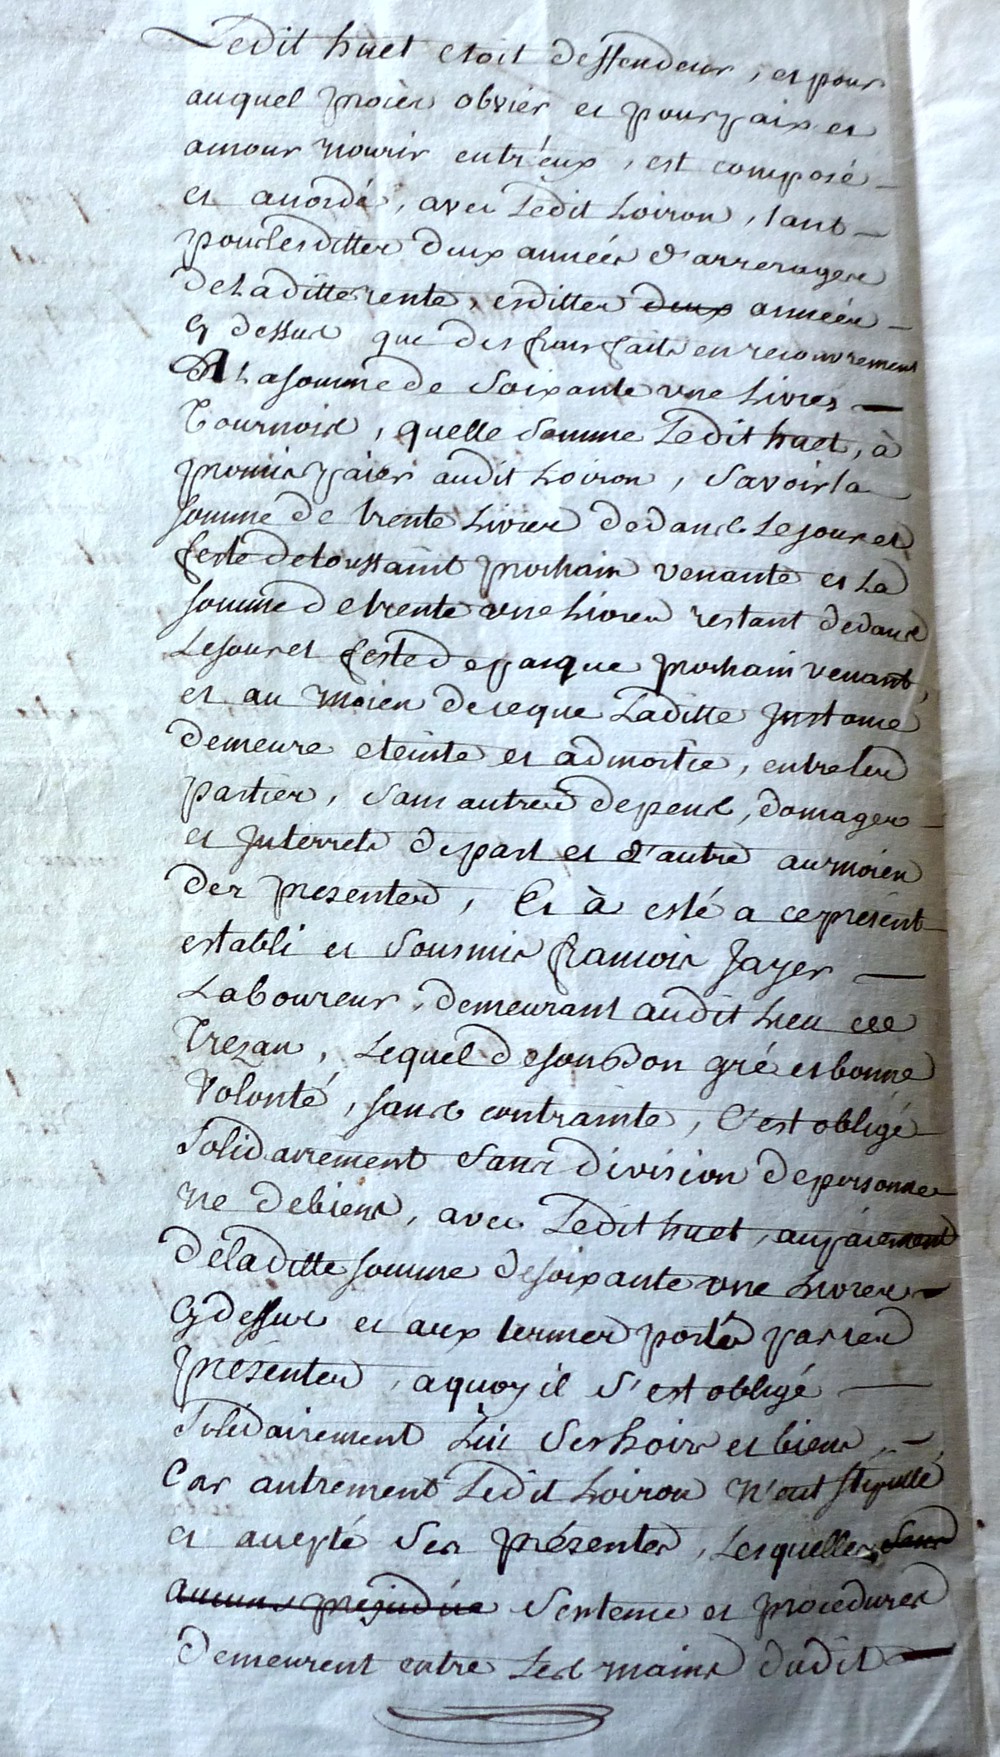 Ledit huet etoit deffendeur, et pour
auquel procès obvier et pour paix et
amour nourir entr'eux, est composé
et acordé, avec Ledit Loiron, tant
pour lesdittes deux années d'arrerages
de Laditte rente, esdittes deux années
cy dessus que des frais faits en recouvrement
A La somme de Soixante une Livres
Tournois, quelle Somme Ledit huet, à
promis païer audit Loiron, Savoir la
somme de trente Livres dedans Le jour et
feste de toussaint prochain venante et La
somme de trente une Livres restant dedans
Le jour et feste de pasque prochain venant,
et au moien de ce que Laditte Instance
demeure eteinte et admortie, entre les
parties, sans autres depens, domages
et Interrets de part et d'autre au moien
des presentes, Et à esté a ce présent
establi et Sousmis francois Jayer
Laboureur, demeurant audit Lieu de
Trezan, Lequel de son bon gré et bonne
Volonté, sans contrainte, c'est obligé
Solidairement Sans division de personnes
ne de biens, avec Ledit huet, au païement
de laditte somme de soixante une Livres
cy dessus et aux termes portés par les
présentes, a quoy il s'est obligé
Solidairement Lui Ses hoirs et biens,
Car autrement Ledit Loiron n'eut stipullé
et accepté Ses présentes, Lesquelles Sans
aucuns prejudice Sentence et procedures
demeurent entre Les mains dudit